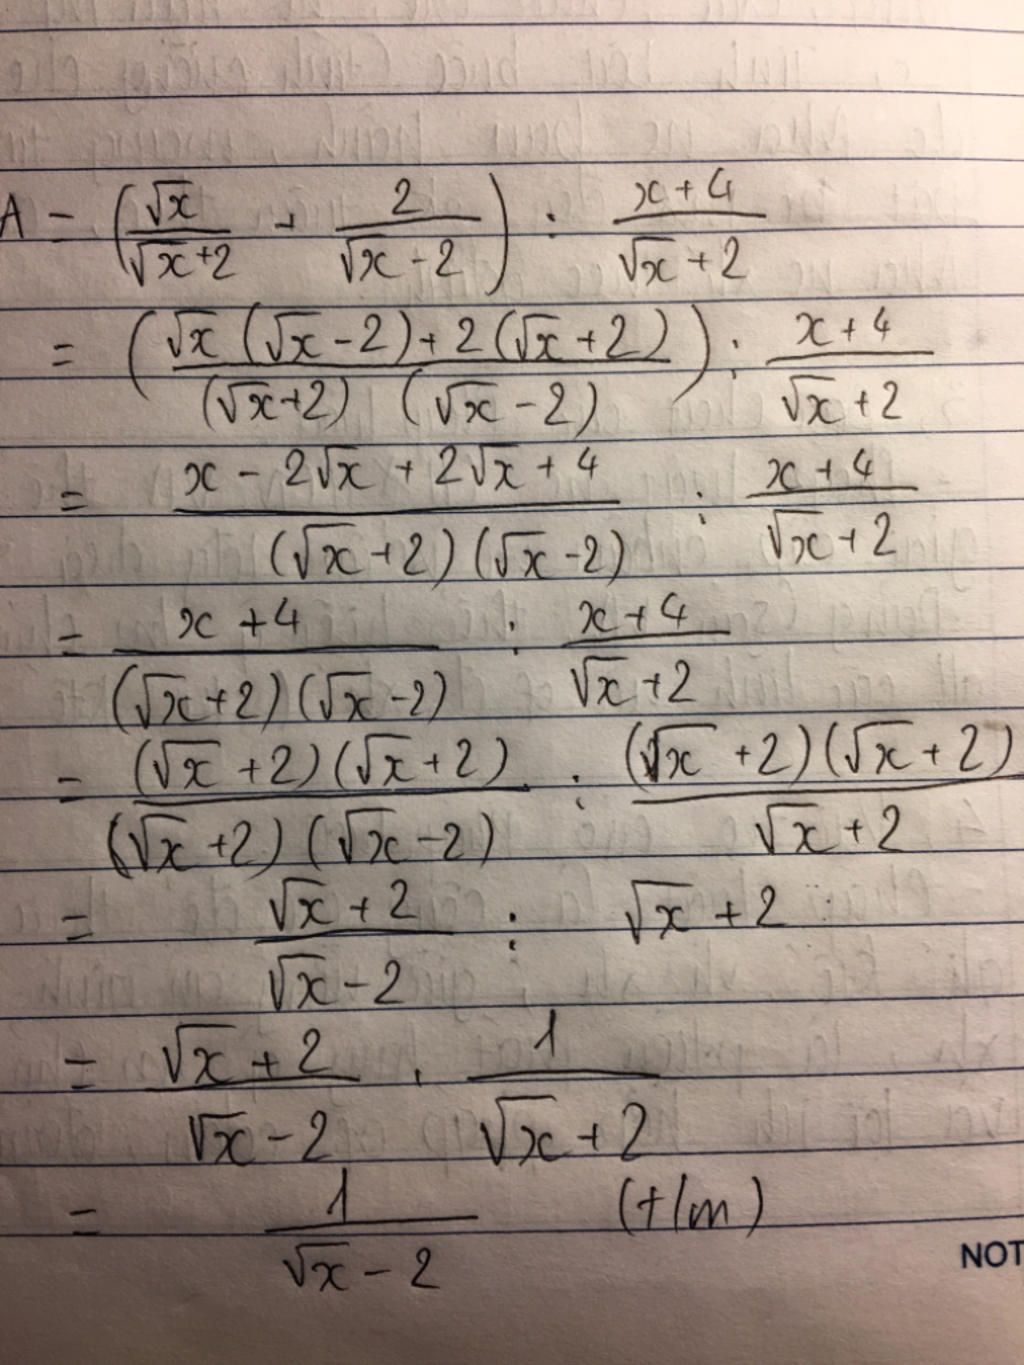 A = (√x/(√x+2) + 2/(√x-2)) : (x+4)/(√x+2)
= ((√x(√x-2)+2(√x+2))/((√x+2)(√x-2))) : (x+4)/(√x+2)
= (x-2√x+2√x+4)/((√x+2)(√x-2)) : (x+4)/(√x+2)
= (x+4)/((√x+2)(√x-2)) : (x+4)/(√x+2)
= ((√x+2)(√x+2))/((√x+2)(√x-2)) : ((√x+2)(√x+2))/(√x+2)
= (√x+2)/(√x-2) : √x+2
= (√x+2)/(√x-2) . 1/(√x+2)
= 1/(√x-2) (t/m)
NOT